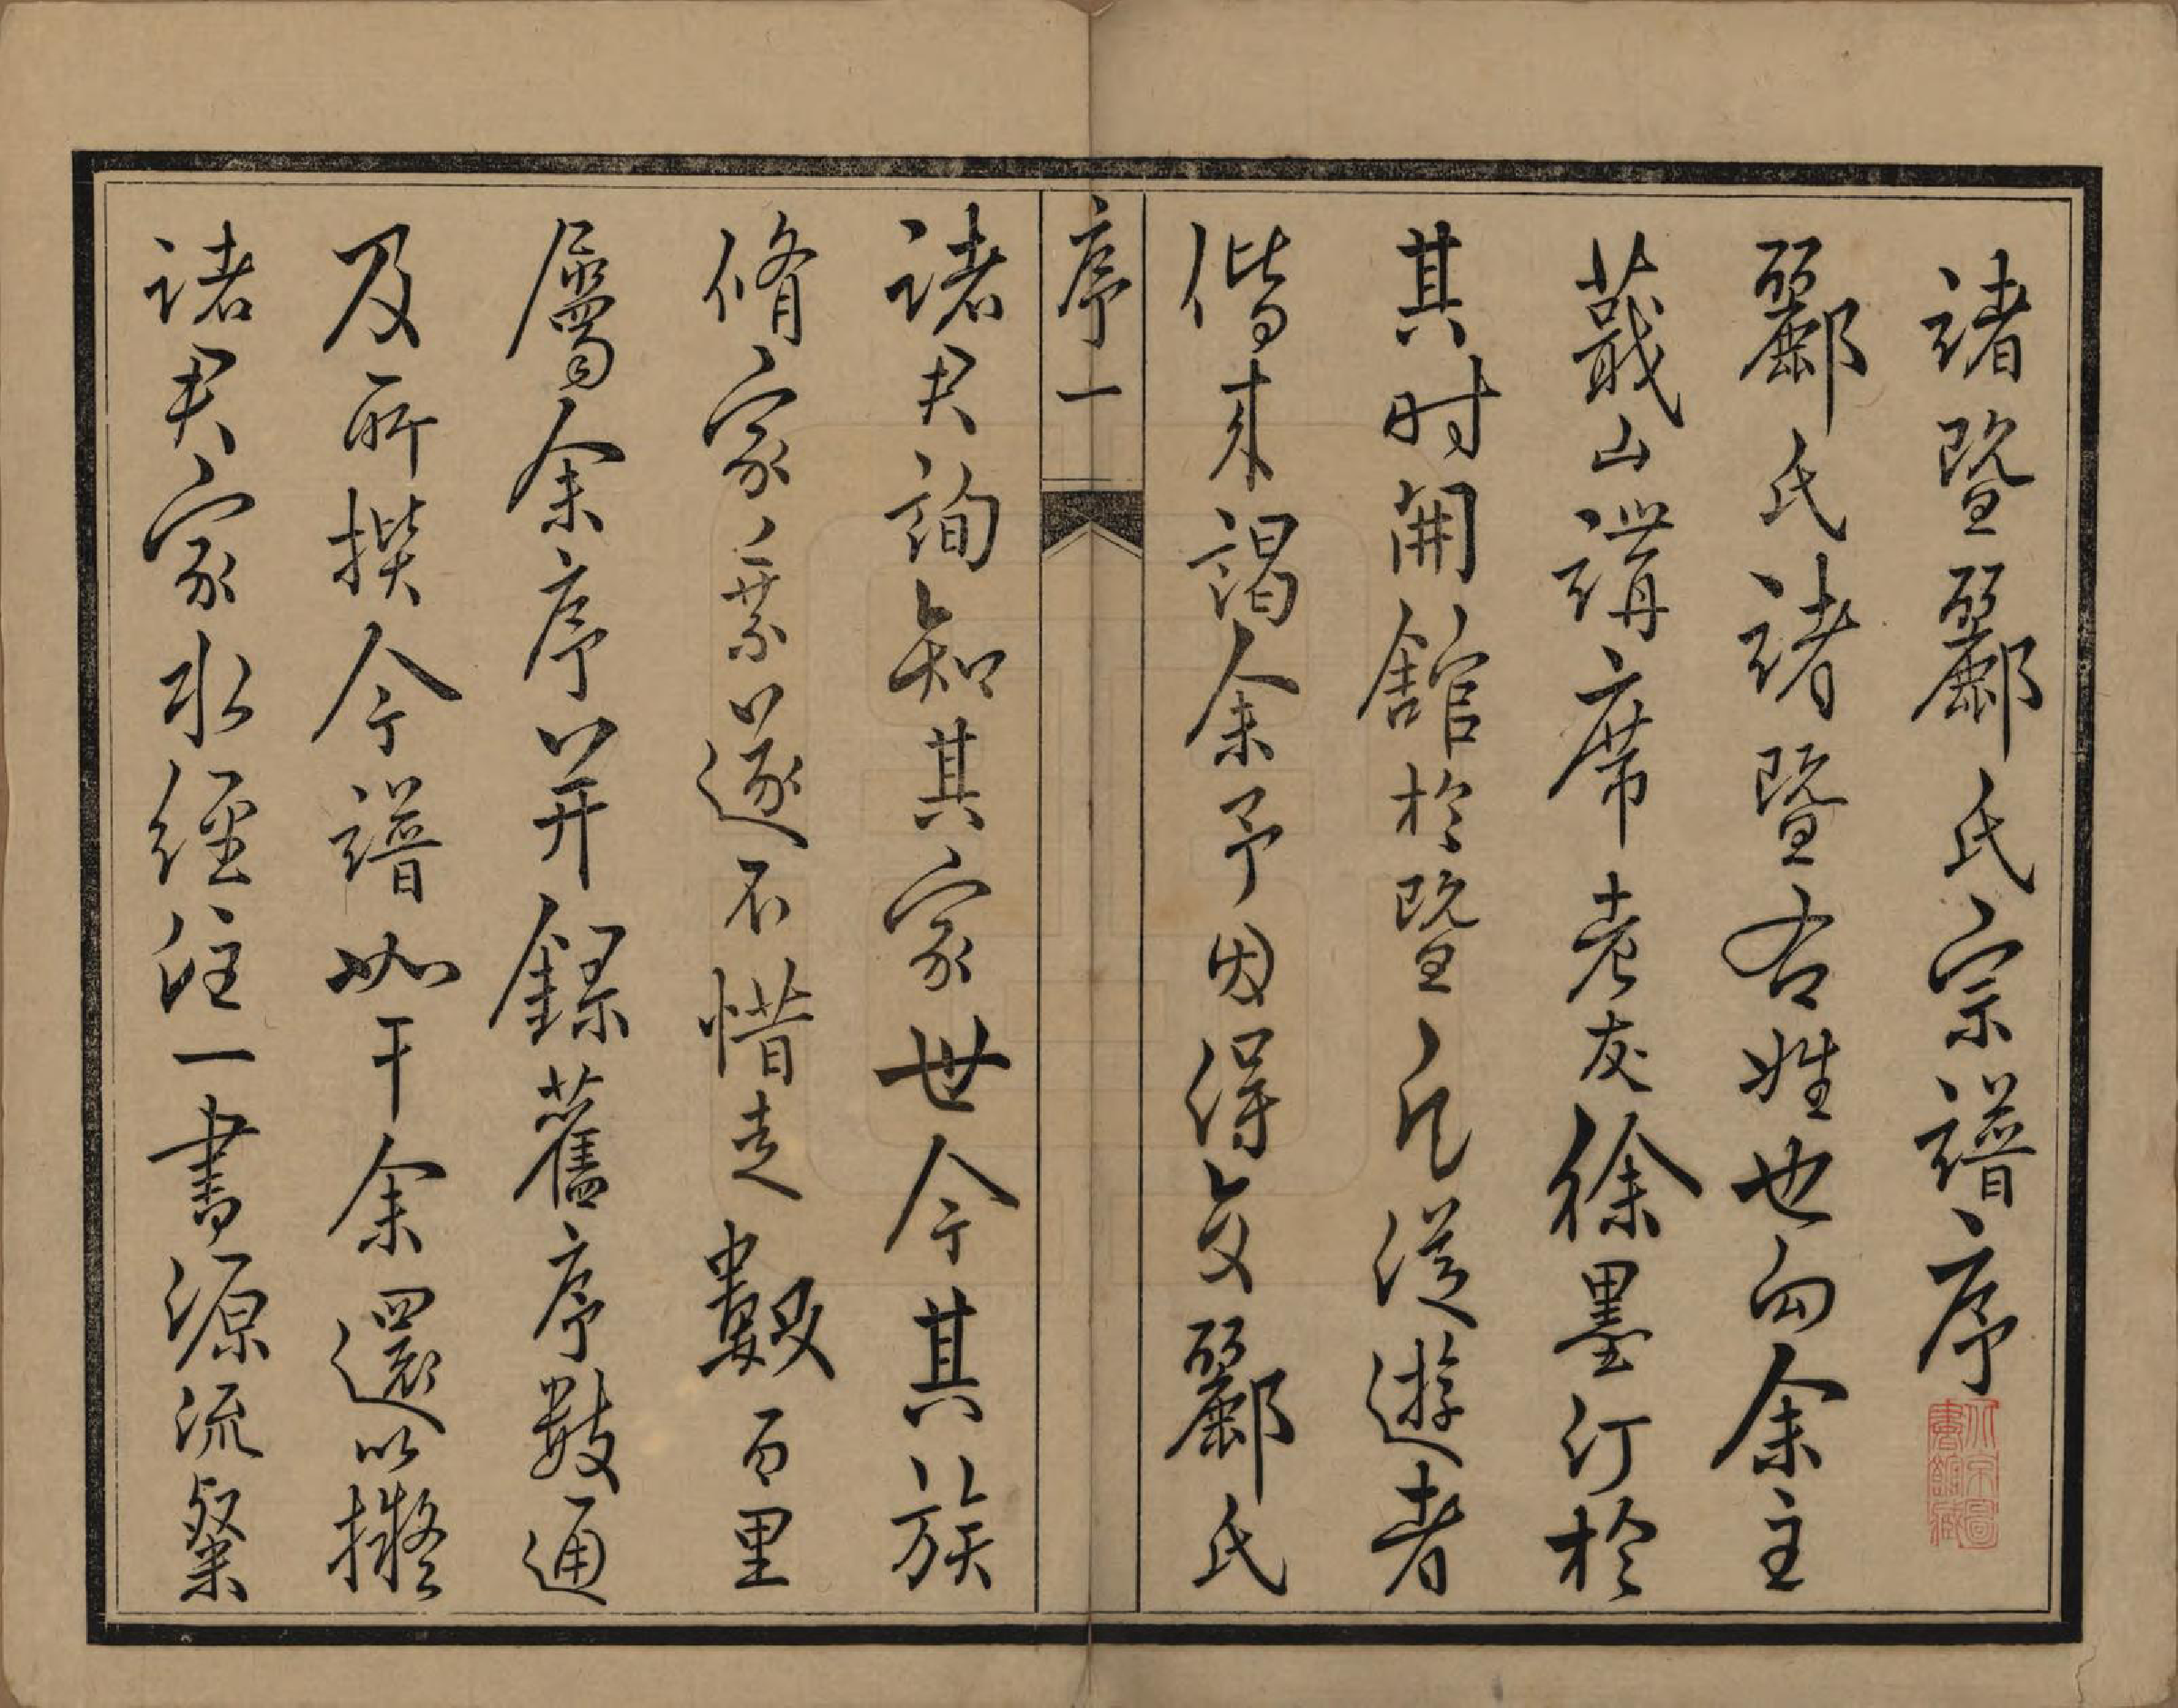 諸暨酈氏宗譜序
酈氏諸暨右姓也向余主
蕺山講席老友徐墨汀於
其时開館於暨之凡從遊者
偕來謁余予因得交酈氏
序一
諸君詢知其家世今其族
脩家之乘以遂不惜走數百里
屬余序以并錄舊序數通
及所撰今譜如干余還以擬
諸君家水經注一書源流粲